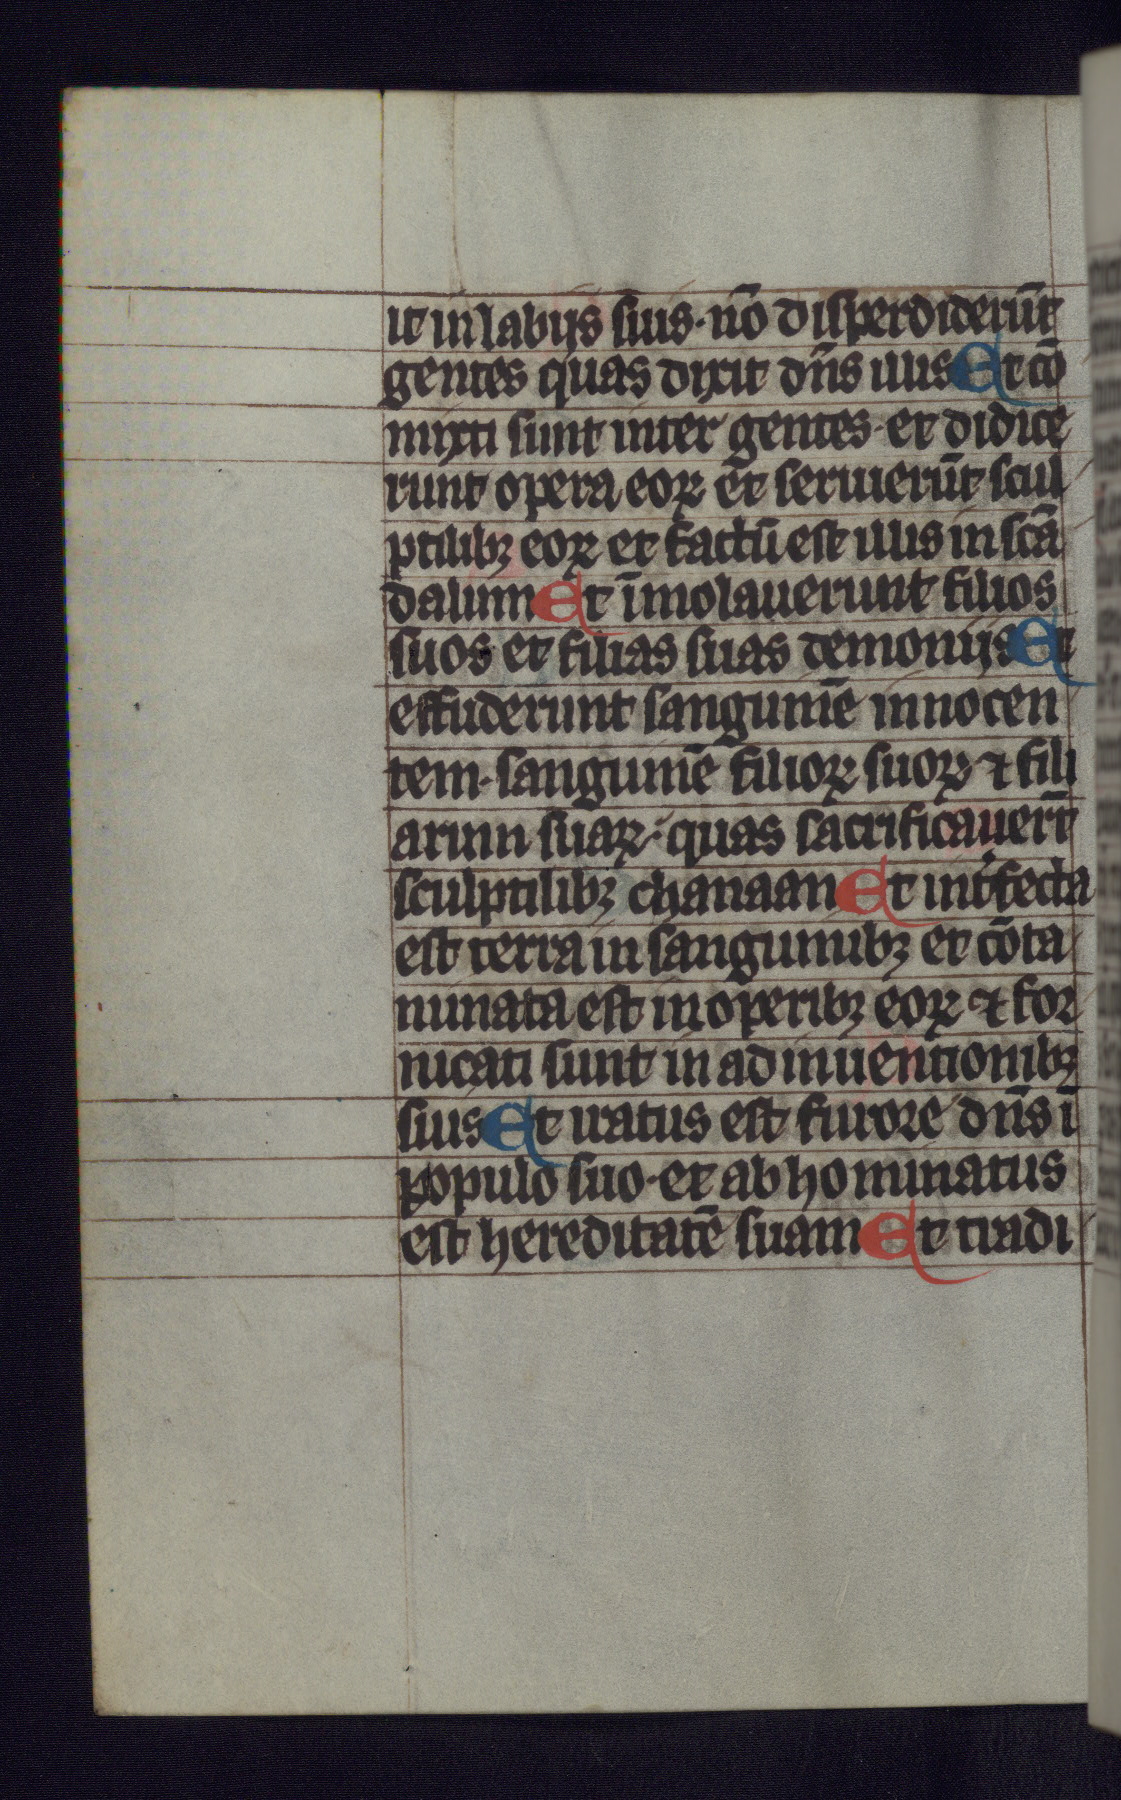 it in labijs suis · nō disperdiderūt
gentes quas dixit dn̄s illis Et cō
mixti sunt inter gentes · et didice
runt opera eoꝝ et seruierūt scul
ptilibꝫ eoꝝ et factū est illis in scā
dalum Et īmolauerunt filios
suos et filias suas demonijs Et
effuderunt sanguinē innocen
tem · sanguinē filioꝝ suoꝝ ⁊ fili
arum suaꝝ · quas sacrificauerūt
sculptilibꝫ chanaan Et int͛fecta
est terra in sanguinibꝫ et cōta
minata est in operibꝫ eoꝝ ⁊ for
nicati sunt in adinuentionibꝫ
suis Et iratus est furore dn̄s ī
populo suo · et abhominatus
est hereditatē suam Et tradi